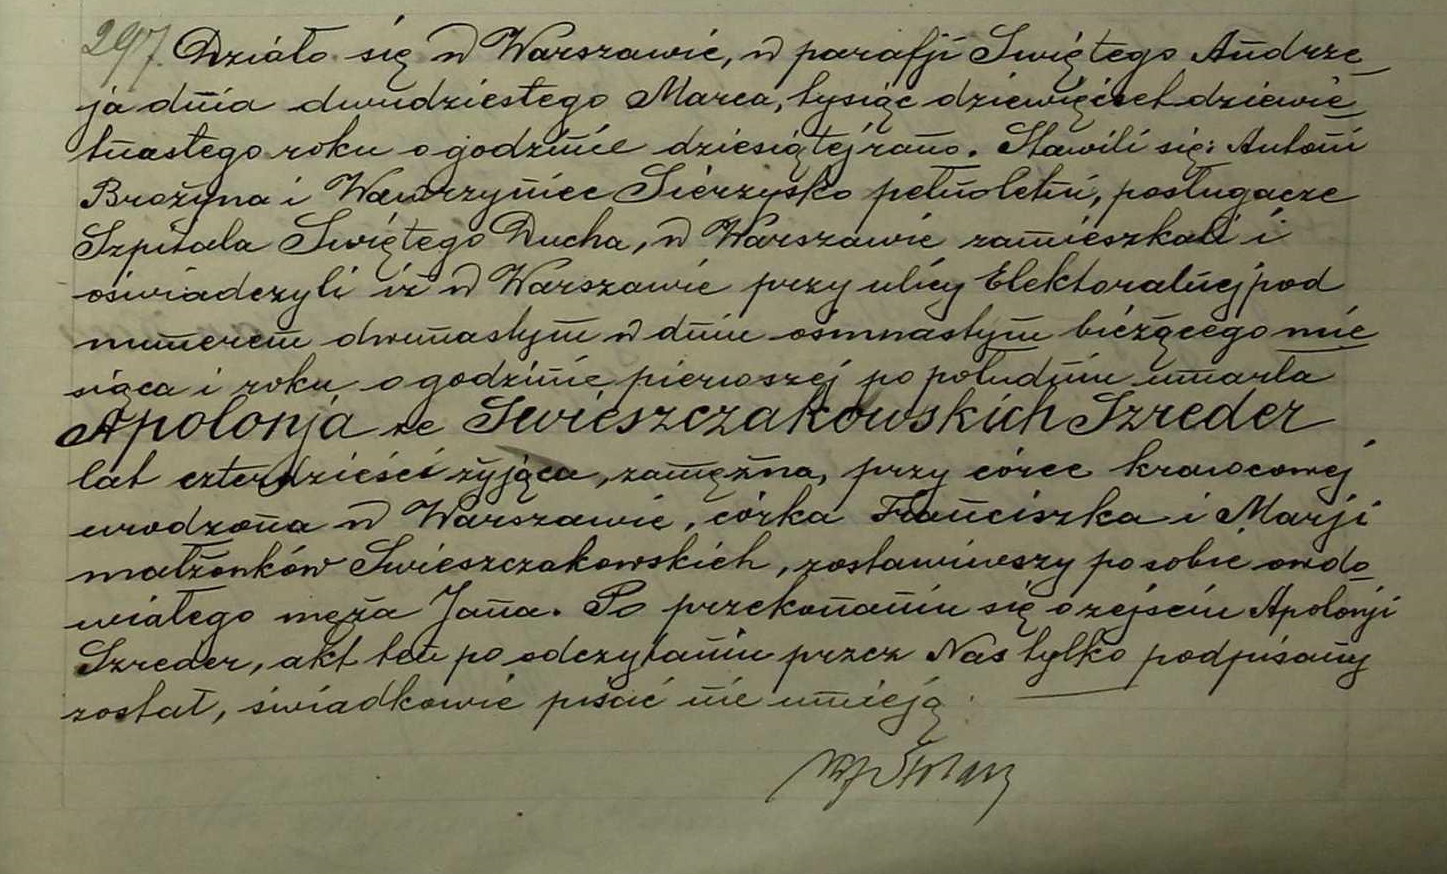 297. Działo się w Warszawie, w parafji Swiętego Andrze
ja dnia dwudziestego Marca, tysiąc dziewięćset dziewię
tnastego roku o godzinie dziesiątej rano. Stawili się: Antoni
Brożyna i Wawrzyniec Sierzysko pełnoletni, posługacze
Szpitala Swiętego Ducha, w Warszawie zamieszkali i
oświadczyli iż w Warszawie przy ulicy Elektoralnej pod
numerem dwunastym w dniu ośmnastym bieżącego mie
siąca i roku o godzinie pierwszej po południu umarła
Apolonja ze Swieszczakowskich Szreder
lat czterdzieści żyjąca, zamężna, przy córce krawcowej
urodzona w Warszawie, córka Franciszka i Marji
małżonków Swieszczakowskich, zostawiwszy po sobie owdo
wiałego męża Jana. Po przekonaniu się o zejściu Apolonji
Szreder, akt ten po odczytaniu przez Nas tylko podpisany
został, świadkowie pisać nie umieją.